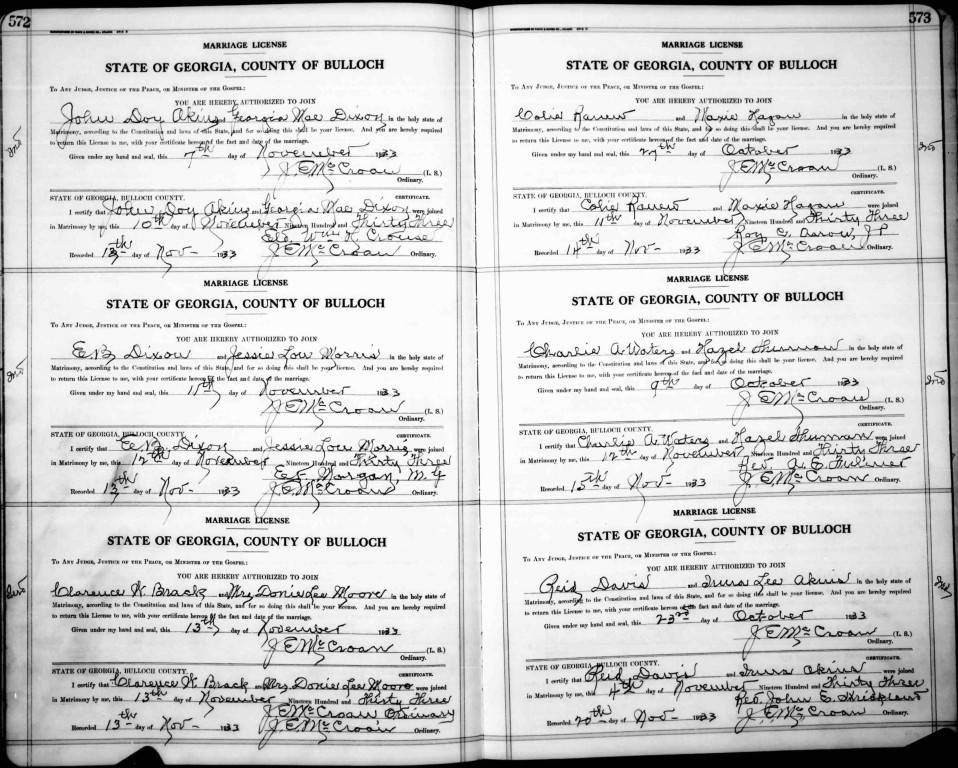 572
MARRIAGE LICENSE
STATE OF GEORGIA, COUNTY OF BULLOCH
To Any Judge, Justice of the Peace, or Minister of the Gospel:
YOU ARE HEREBY AUTHORIZED TO JOIN
John Doy Akins Georgia Mae Dixon in the holy state of
Matrimony, according to the Constitution and laws of this State, and for so doing this shall be your license. And you are hereby required
to return this License to me, with your certificate hereon of the fact and date of the marriage.
Given under my hand and seal, this 7th day of November 1933
J. E. McCroan (L. S.)
Ordinary.
STATE OF GEORGIA, BULLOCH COUNTY. CERTIFICATE.
I certify that John Doy Akins and Georgia Mae Dixon were joined
in Matrimony by me, this 10th day of November Nineteen Hundred and Thirty Three
Eld. Wm H. Crouse
Recorded 13th day of Nov- 1933 J. E. McCroan Ordinary.
MARRIAGE LICENSE
STATE OF GEORGIA, COUNTY OF BULLOCH
To Any Judge, Justice of the Peace, or Minister of the Gospel:
YOU ARE HEREBY AUTHORIZED TO JOIN
E. B. Dixon and Jessie Lou Morris in the holy state of
Matrimony, according to the Constitution and laws of this State, and for so doing this shall be your license. And you are hereby required
to return this License to me, with your certificate hereon of the fact and date of the marriage.
Given under my hand and seal, this 11th day of November 1933
J. E. McCroan (L. S.)
Ordinary.
STATE OF GEORGIA, BULLOCH COUNTY. CERTIFICATE.
I certify that E. B. Dixon and Jessie Lou Morris were joined
in Matrimony by me, this 12th day of November Nineteen Hundred and Thirty Three
E. F. Morgan, M. G
Recorded 13th day of Nov- 1933 J. E. McCroan Ordinary.
MARRIAGE LICENSE
STATE OF GEORGIA, COUNTY OF BULLOCH
To Any Judge, Justice of the Peace, or Minister of the Gospel:
YOU ARE HEREBY AUTHORIZED TO JOIN
Clarence W. Brack and Mrs. Donie Lee Moore in the holy state of
Matrimony, according to the Constitution and laws of this State, and for so doing this shall be your license. And you are hereby required
to return this License to me, with your certificate hereon of the fact and date of the marriage.
Given under my hand and seal, this 13th day of November 1933
J. E. McCroan (L. S.)
Ordinary.
STATE OF GEORGIA, BULLOCH COUNTY. CERTIFICATE.
I certify that Clarence W. Brack and Mrs. Donie Lee Moore were joined
in Matrimony by me, this 13th day of November Nineteen Hundred and Thirty Three
J. E. McCroan Ordinary
Recorded 13th day of Nov- 1933 J. E. McCroan Ordinary.
573
MARRIAGE LICENSE
STATE OF GEORGIA, COUNTY OF BULLOCH
To Any Judge, Justice of the Peace, or Minister of the Gospel:
YOU ARE HEREBY AUTHORIZED TO JOIN
Colie and Maxie Hagan in the holy state of
Matrimony, according to the Constitution and laws of this State, and for so doing this shall be your license. And you are hereby required
to return this License to me, with your certificate hereon of the fact and date of the marriage.
Given under my hand and seal, this 27th day of October 1933
J. E. McCroan (L. S.)
Ordinary.
STATE OF GEORGIA, BULLOCH COUNTY. CERTIFICATE.
I certify that Colie and Maxie Hagan were joined
in Matrimony by me, this 11th day of November Nineteen Hundred and Thirty Three
Roy C. J P
Recorded 14th day of Nov- 1933 J. E. McCroan Ordinary.
MARRIAGE LICENSE
STATE OF GEORGIA, COUNTY OF BULLOCH
To Any Judge, Justice of the Peace, or Minister of the Gospel:
YOU ARE HEREBY AUTHORIZED TO JOIN
Charlie A Waters and Hazel Thurman in the holy state of
Matrimony, according to the Constitution and laws of this State, and for so doing this shall be your license. And you are hereby required
to return this License to me, with your certificate hereon of the fact and date of the marriage.
Given under my hand and seal, this 9th day of October 1933
J. E. McCroan (L. S.)
Ordinary.
STATE OF GEORGIA, BULLOCH COUNTY. CERTIFICATE.
I certify that Charlie A Waters and Hazel Thurman were joined
in Matrimony by me, this 12th day of November Nineteen Hundred and Thirty Three
Rev. A. E.
Recorded 15th day of Nov- 1933 J. E. McCroan Ordinary.
MARRIAGE LICENSE
STATE OF GEORGIA, COUNTY OF BULLOCH
To Any Judge, Justice of the Peace, or Minister of the Gospel:
YOU ARE HEREBY AUTHORIZED TO JOIN
Reid Davis and Lee Akins in the holy state of
Matrimony, according to the Constitution and laws of this State, and for so doing this shall be your license. And you are hereby required
to return this License to me, with your certificate hereon of the fact and date of the marriage.
Given under my hand and seal, this 23rd day of October 1933
J. E. McCroan (L. S.)
Ordinary.
STATE OF GEORGIA, BULLOCH COUNTY. CERTIFICATE.
I certify that Reid Davis and Akins were joined
in Matrimony by me, this 4th day of November Nineteen Hundred and Thirty Three
Rev. John S. Strickland
Recorded 20th day of Nov- 1933 J. E. McCroan Ordinary.